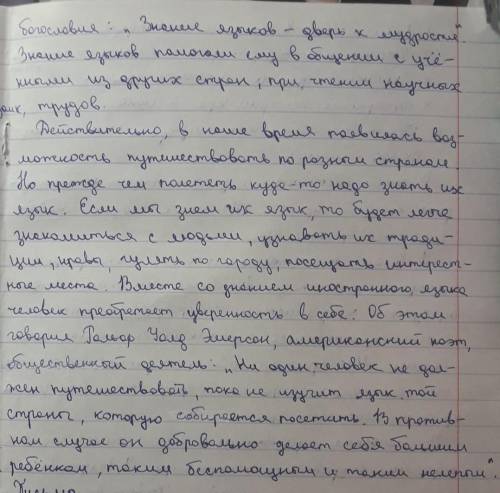 богословия: „Знание языков – дверь к мудрости".
Знание языков помогали ему в общении с учё-
ными из других стран, при чтении научных
трудов.
Действительно, в наше время появилась воз-
можность путешествовать по разным странам.
Но прежде чем полететь куда-то надо знать их
язык. Если мы знаем их язык, то будет легче
знакомиться с людьми, узнавать их тради-
ции, нравы, гулять по городу, посещать интерест-
ные места. Вместе со знанием иностранного языка
человек преобретает уверенность в себе. Об этом
говорил Ральф Уолд Эмерсон, американский поэт,
общественный деятель: „Ни один человек не дол-
жен путешествовать, пока не изучит язык той
страны, которую собирается посетить. В против-
ном случае он добровально делает себя большим
ребёнком, таким беспомощным и таким нелепым".